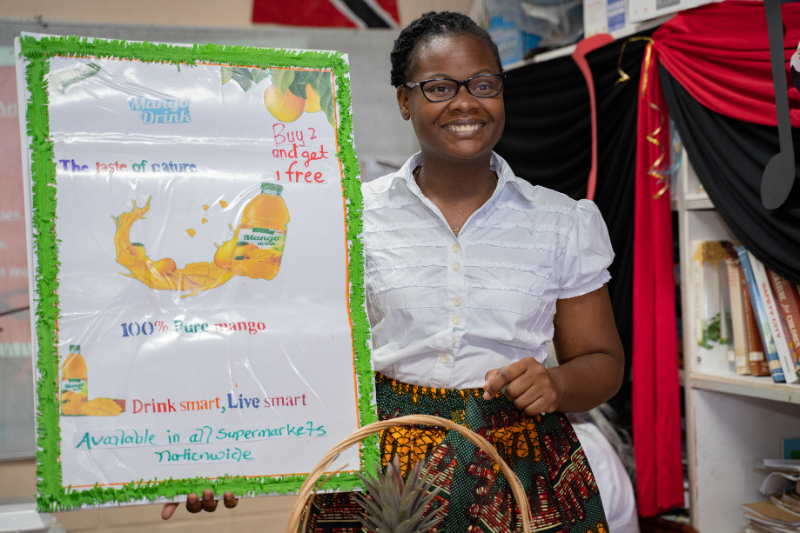 Mango
Drink
Buy 2
and get
1 free
The taste of nature
Mango
drink
100% Pure mango
Drink smart, Live smart
Available in all Supermarkets
nationwide
SAFETY CITY